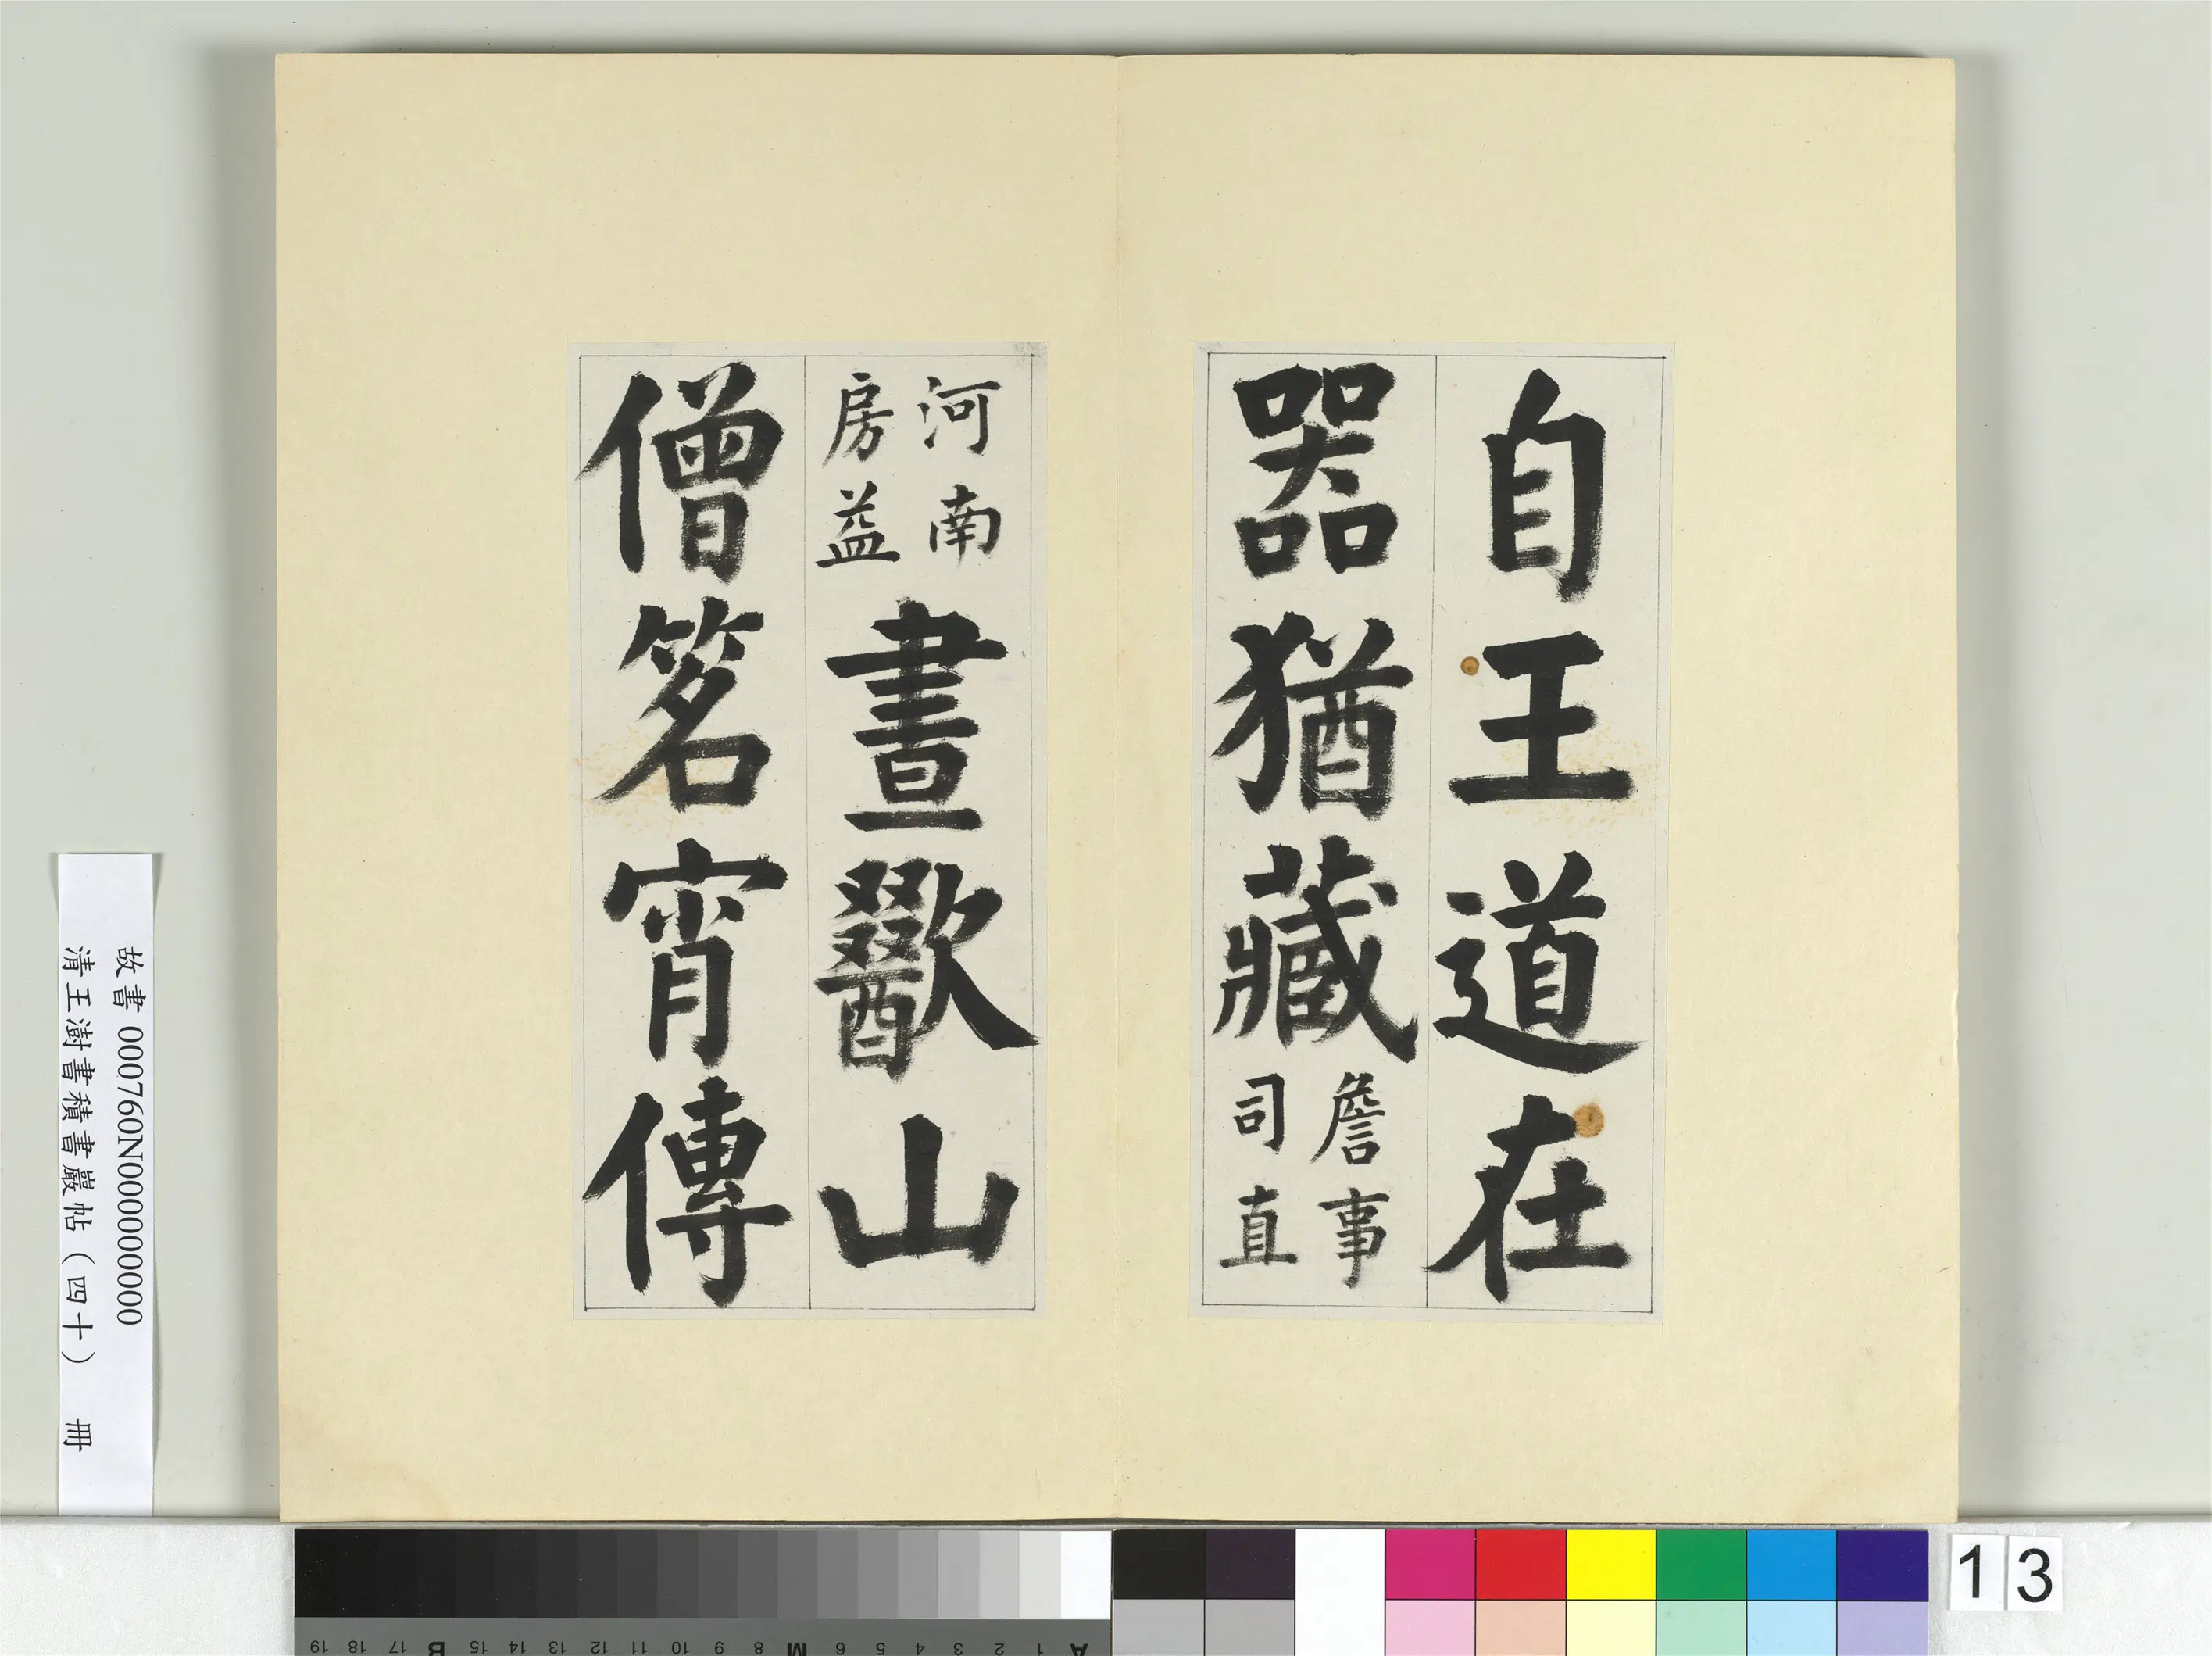 自王道在
器猶藏詹事
司直
河南
房益
晝歠山
僧茗宵傳
故書 000760N000000000
清王澍書積書巖帖（四十） 冊
A 1 2 3 4 5 6 M 8 9 10 11 12 13 14 15 B 17 18 19
13